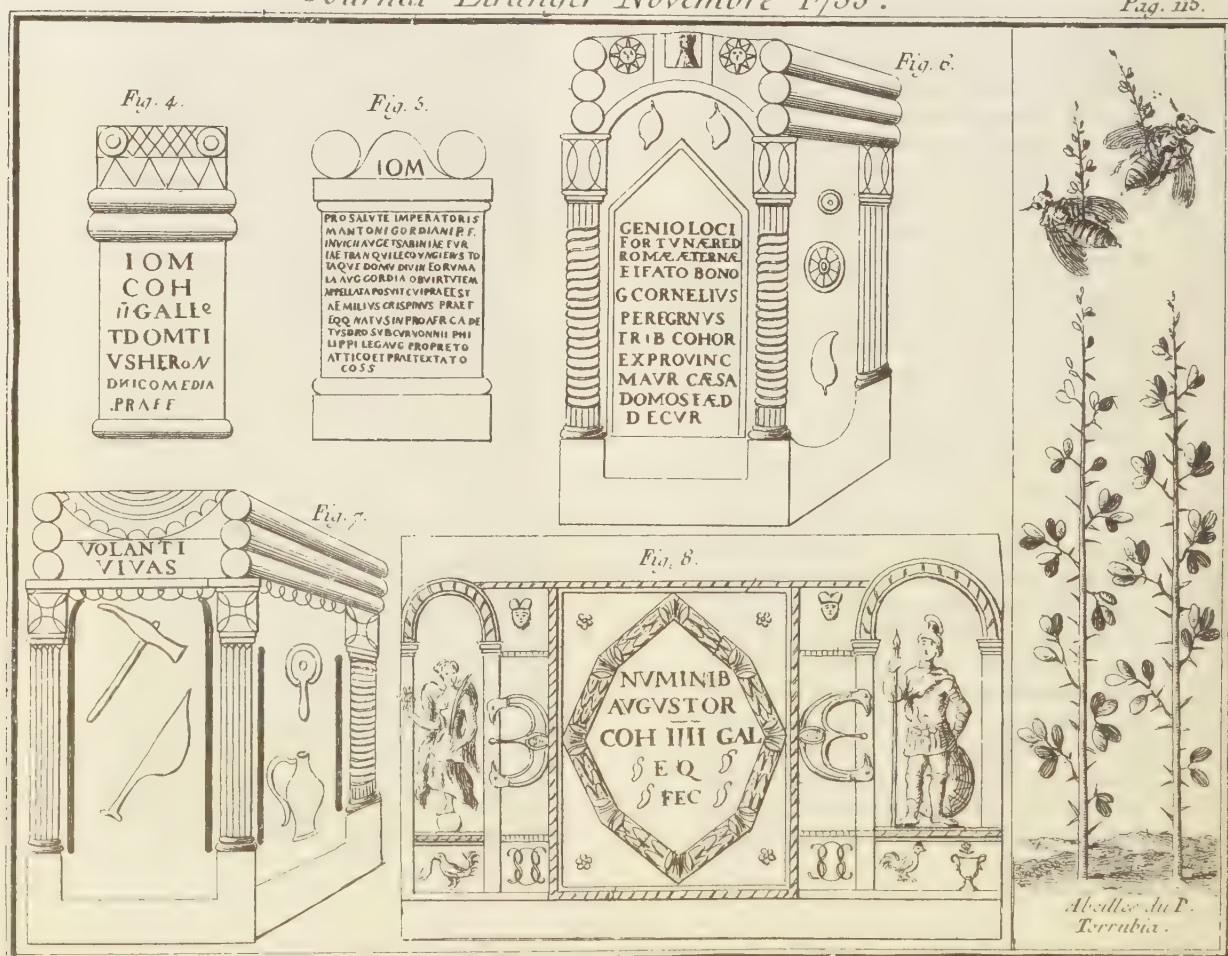 Journal Etranger Novembre 1755.
Pag. 115.
Fig. 4.
IOM
COH
II GALLe
TDOMTI
VSHERON
DNICOMEDIA
.PRAFF
Fig. 5.
IOM
PRO SALVTE IMPERATORIS
MANTONI GORDIANI P. F.
INVICII AVGETSABINIAE FVR
IAE TRANQVILECOVNGIEIVS TO
TAQVE DOMV DIVIN EORVMA
LA AVG GORDIA OBVIRTVTEM
APPELLATA POSVIT CVIPRAEEST
AEMILIVS CRISPINVS PRAEF
EQQ NATVS IN PRO AFRCA DE
TVSDRO SVBCVRVONNII PHI
LIPPI LEG AVG PROPRETO
ATTICO ET PRAETEXTATO
COSS
Fig. 6.
GENIO LOCI
FORTVNÆ RED
ROMÆ ÆTERNÆ
EIFATO BONO
G CORNELIVS
PEREGRNVS
TRIB COHOR
EXPROVINC
MAVR CÆSA
DOMOS EÆD
DECVR
Fig. 7.
VOLANTI
VIVAS
Fig. 8.
NVMINIB
AVGVSTOR
COH IIII GAL
EQ
FEC
Abeilles du P.
Torrubia.